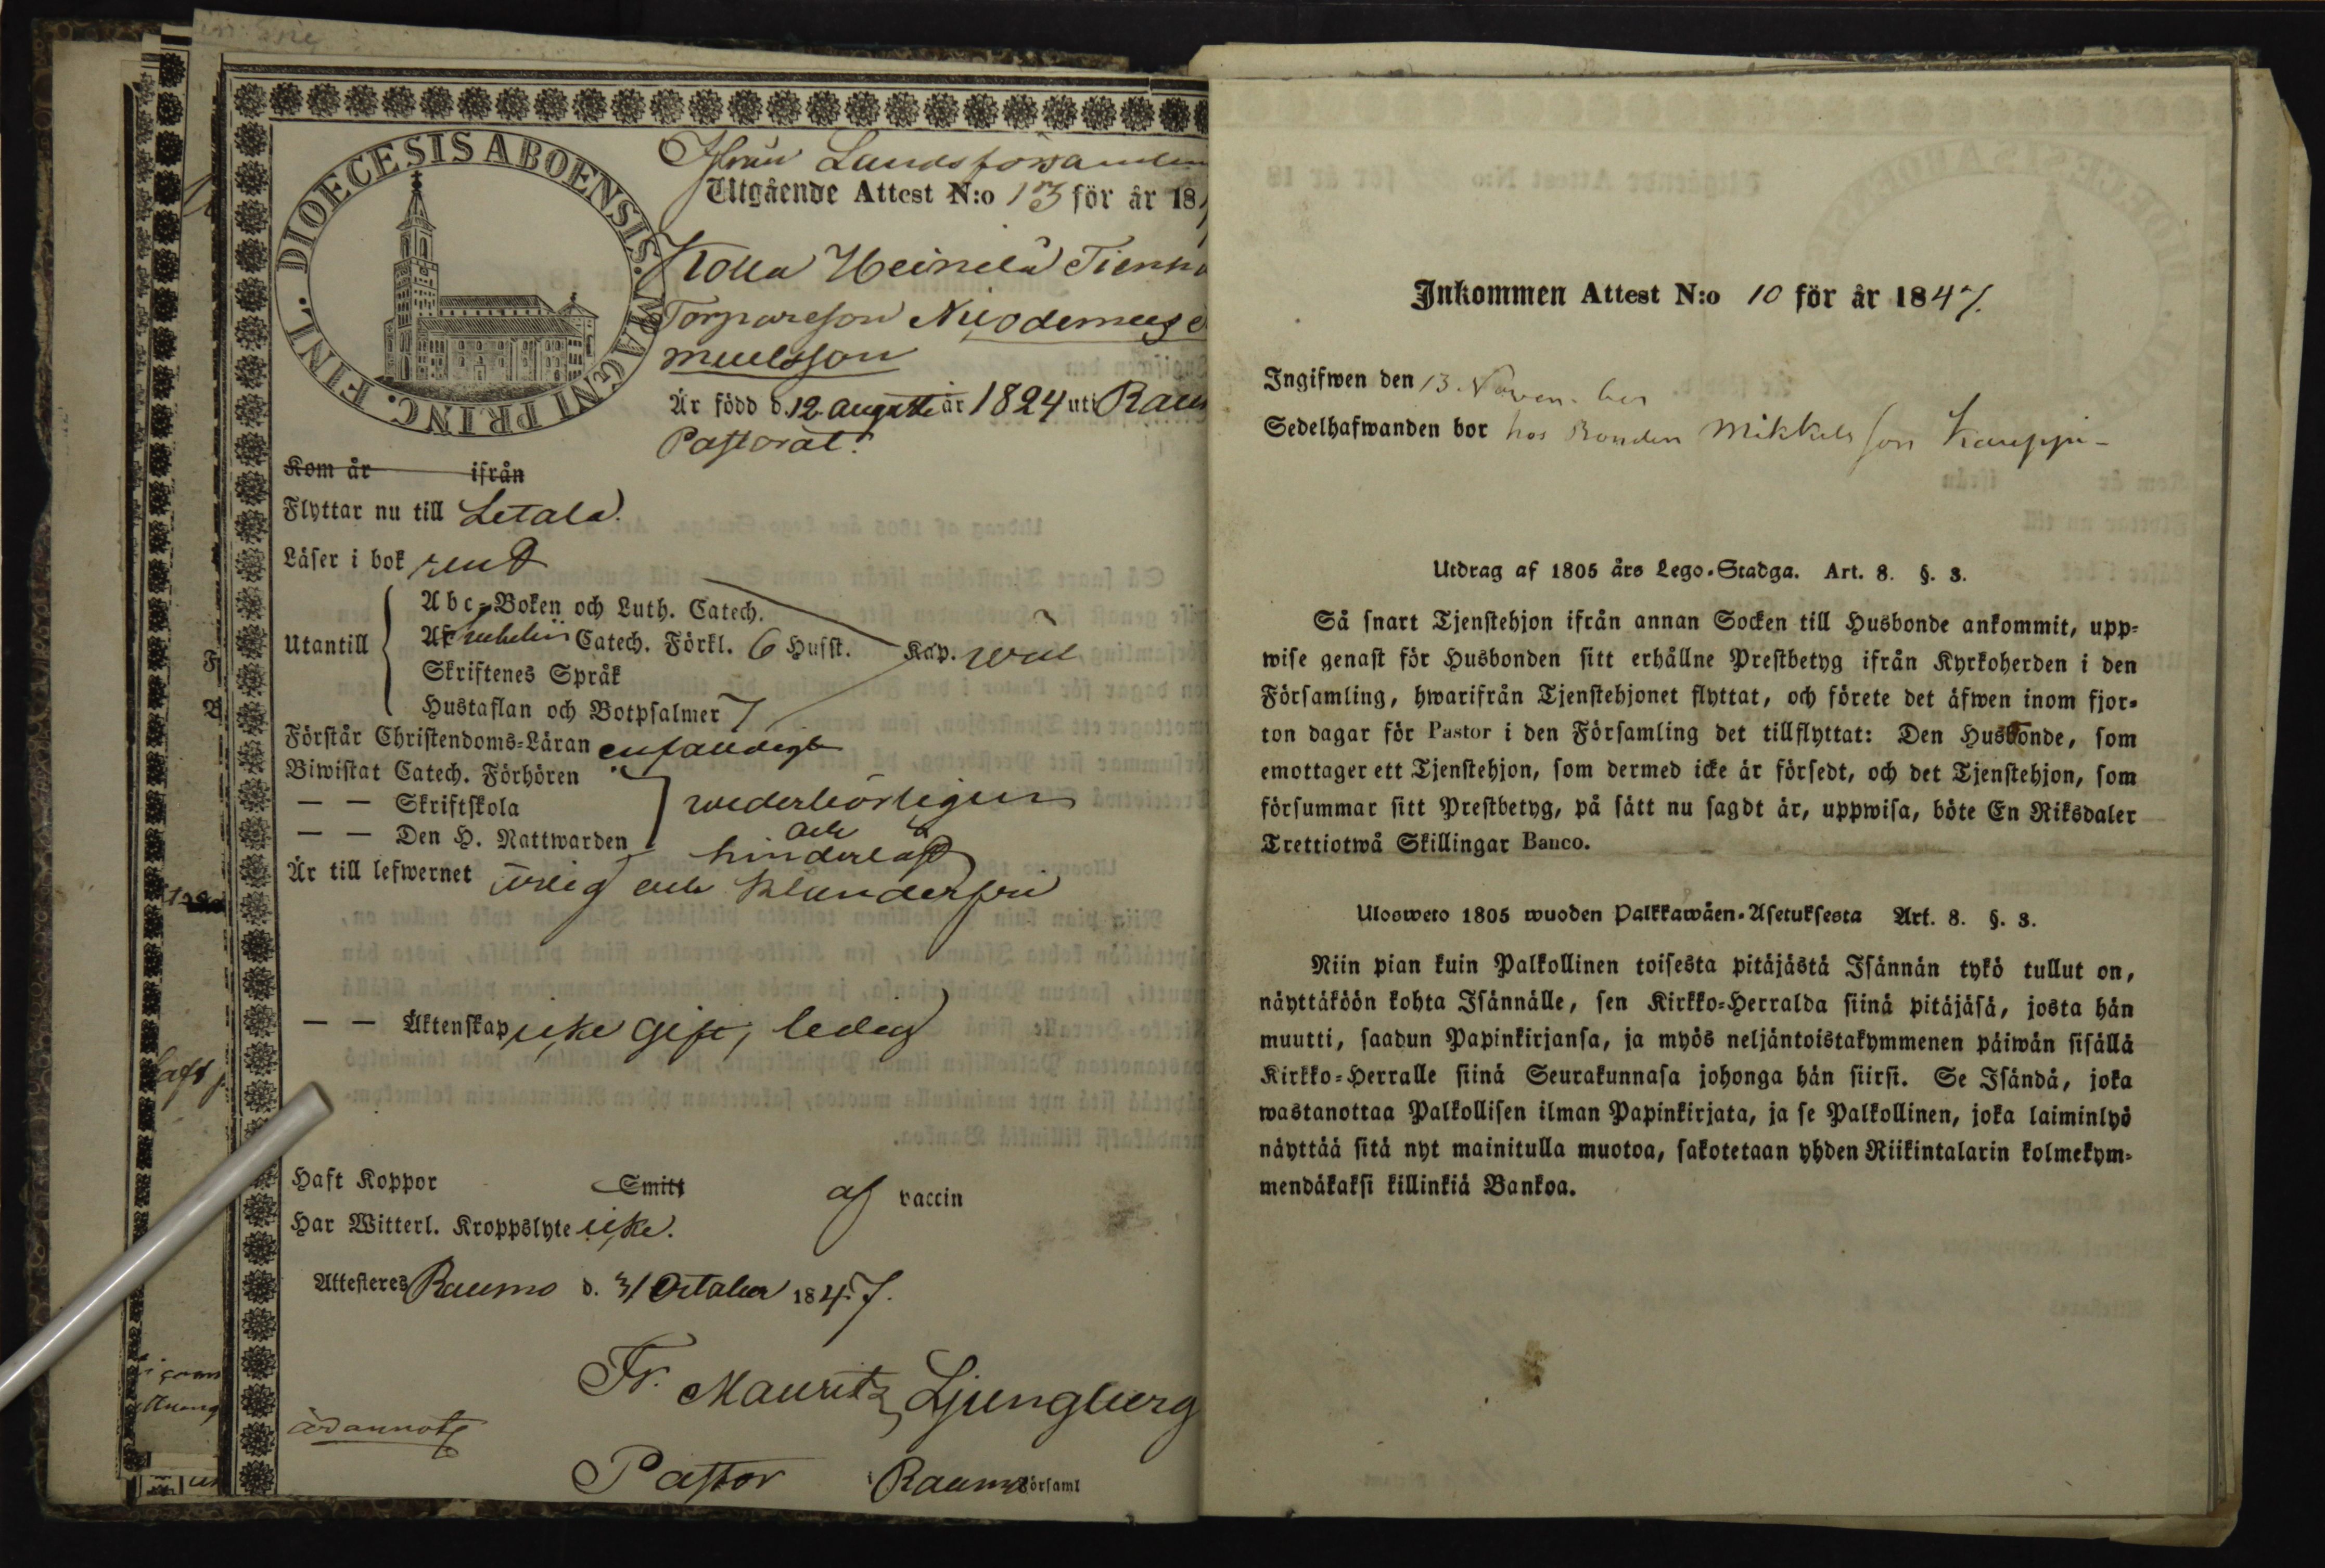 DIOECESIS ABOENSIS. MAGNI PRINC. FINL.
Ifrån Landsförsamlin
Utgående Attest N:o 13 för år 18
Kolla Heinilä Tienha
Torpareson Nicodemus
muelsson
Är född d. 12 augusti år 1824 uti Rau
Pastorat.
Kom år ifrån
Flyttar nu till Letala.
Läser i bok rent
Abc-Boken och Luth. Catech.
Utantill
Af Catech. Förkl. 6 Hufst. Kap. wäl
Skriftenes Språk
Hustaflan och Botpsalmer 7
Förstår Christendoms-Läran enfaldigt
Biwistat Catech. Förhören
— — Skriftskola wederbörligen
— — Den H. Nattwarden och hinderlöst
Är till lefwernet ärlig och klanderfri
— — Äktenskap icke gift, ledig
Haft Koppor Smitt af vaccin
Har Witterl. Kroppslyte icke.
Attesteres Raumo d. 31 October 1847.
Fr. Mauritz Ljungberg
adannot
Pastor i Raumo Församl
Inkommen Attest N:o 10 för år 1847.
Ingifwen den 13. Novem-ber
Sedelhafwanden bor hos Bonden Mikkelsson Kauppi-
Utdrag af 1805 års Lego-Stadga. Art. 8. §. 3.
Så snart Tjenstehjon ifrån annan Socken till Husbonde ankommit, upp-
wise genast för Husbonden sitt erhållne Prestbetyg ifrån Kyrkoherden i den
Församling, hwarifrån Tjenstehjonet flyttat, och förete det äfwen inom fjor-
ton dagar för Pastor i den Församling det tillflyttat: Den Husbonde, som
emottager ett Tjenstehjon, som dermed icke är försedt, och det Tjenstehjon, som
försummar sitt Prestbetyg, på sätt nu sagdt är, uppwisa, böte En Riksdaler
Trettiotwå Skillingar Banco.
Ulosweto 1805 wuoden Palkkawäen-Asetuksesta Art. 8. §. 3.
Niin pian kuin Palkollinen toisesta pitäjästä Isännän tykö tullut on,
näyttäköön kohta Isännälle, sen Kirkko-Herralda siinä pitäjäsä, josta hän
muutti, saadun Papinkirjansa, ja myös neljäntoistakymmenen päiwän sisällä
Kirkko-Herralle siinä Seurakunnasa johonga hän siirsi. Se Isändä, joka
wastanottaa Palkollisen ilman Papinkirjata, ja se Palkollinen, joka laiminlyö
näyttää sitä nyt mainitulla muotoa, sakotetaan yhden Riikintalarin kolmekym-
mendäkaksi killinkiä Bankoa.